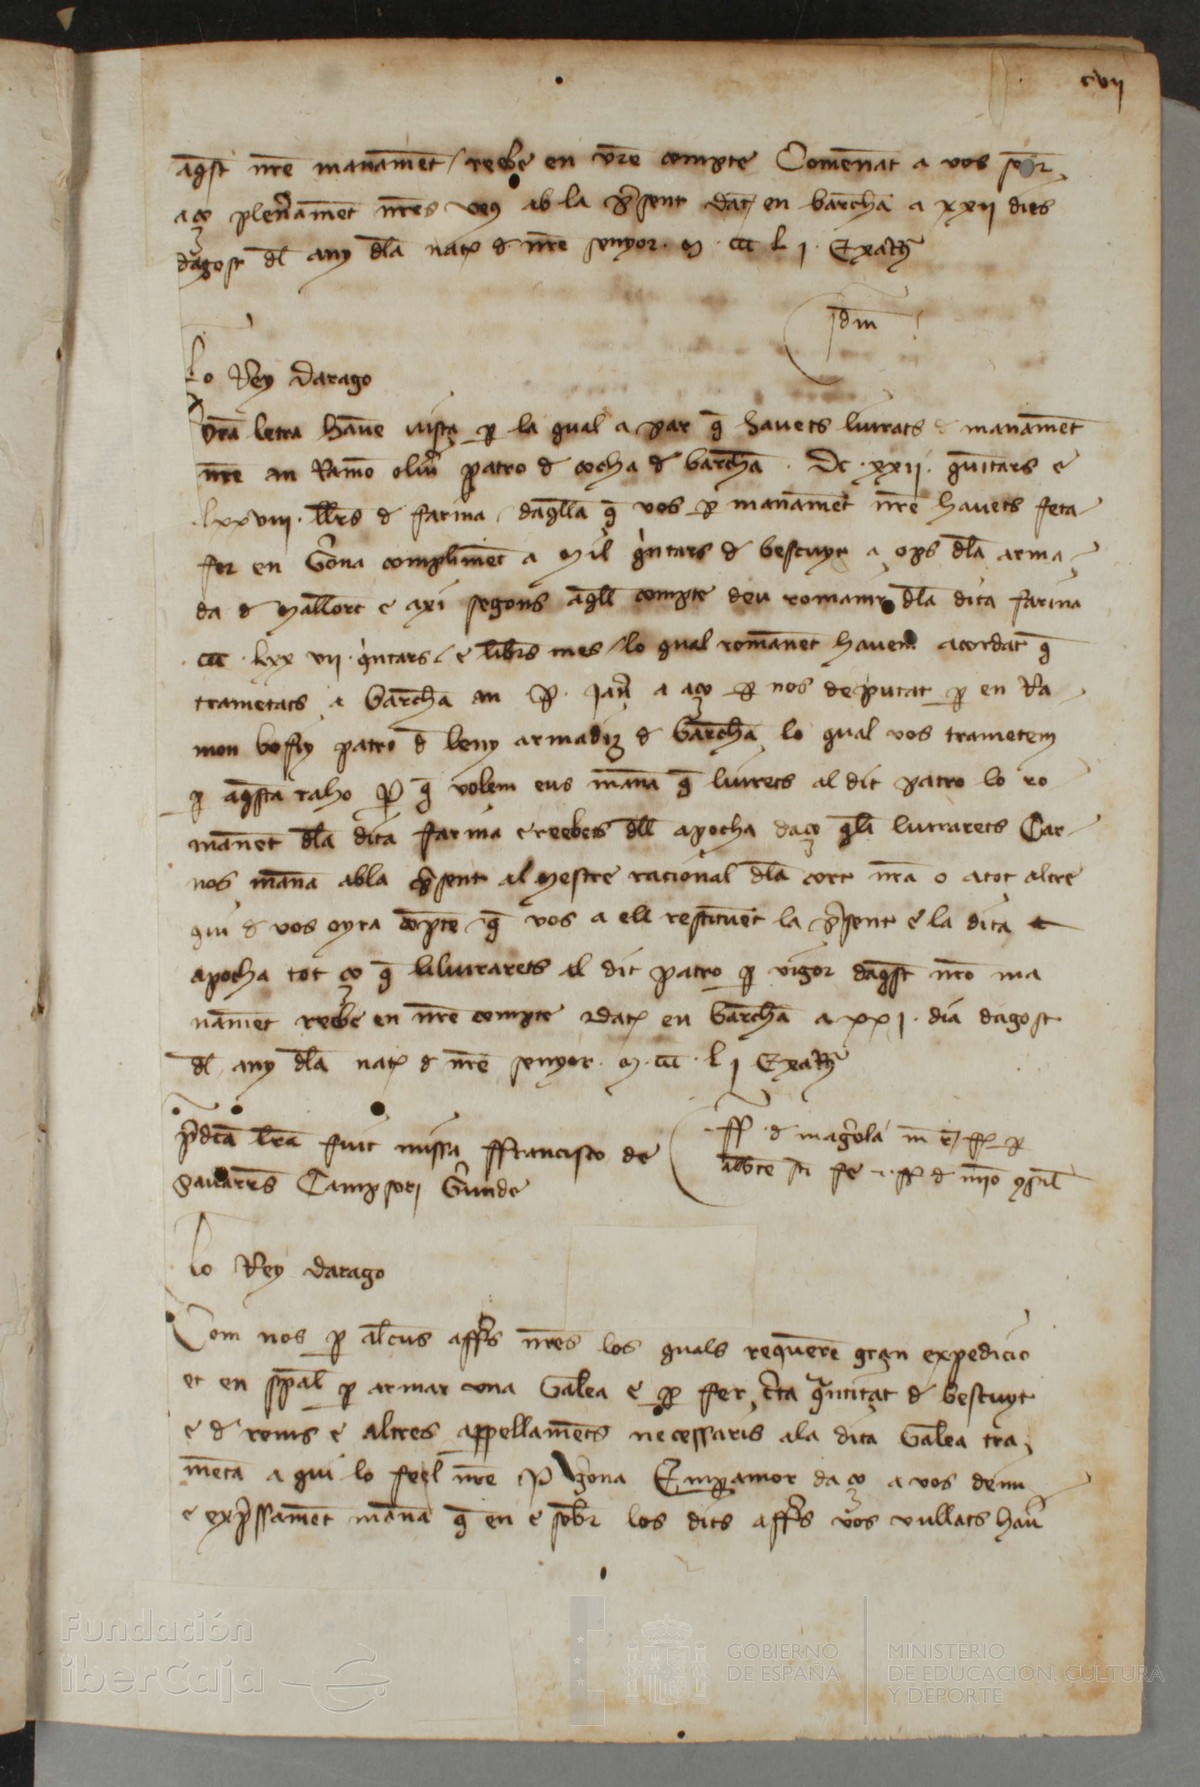 cvij
aq̄st nr̄e manamēt / reebe en vr̄e compte Comēnat a vos sob̄r
aço plen̄amēt nr̄es veus ab la p̄sent dat̄ en barch̄a a xxij dies
dagost dl̄ any dl̄a nat̄ d nr̄e senyor · M · ccc l j · Exat̄
Idm̄
Lo Rey darago
Vr̄a letra hauē vista p̲ la qual a par q̄ hauets liurats d manamēt
nr̄e an Ramō oliū patro d cocha d barch̄a · Dc · xxij · quītars e
· lxxviij · llr̄s d farina / daq̄lla q̄ vos p̲ manamēt nr̄e hauets feta
fer en Gr̄ona complimēt a Mil qi̇ntars d bescuyt a ops dl̄a arma
da d Mallorc̄ e axi segons aq̄ll compte deu romanir dl̄a dita farina
· ccc · lxx vij · qi̇ntars / e libr̄s mes / lo qual romānēt hauem acordat q̄
trametats a barch̄a an P̲ · Jaū a aço p̲ nos deputat p̲ en Ra
mon boffiy patro d̄ leny armadiz d barch̄a lo qual vos trametem
p̲ aq̄sta raho P̲ q̄ volem eus manā q̄ liurets al dit patro lo ro
mānēt dl̄a dita farina e reebets dl̄l apocha daço q̄ li liurarets Car
nos manā abla p̄sent al Mestre racional dl̄a cort nr̄a o atot altre
qui d vos oyra cōpte q̄ vos a ell restituent la p̄sent e la dita
apocha tot ço q̄ liliurarets al dit patro p̲ vigor daq̄st nr̄e ma
namēt reebe en vr̄e compte dat̄ en barch̄a a xxj · dia dagost
dl̄ any dl̄a nat̄ d nr̄e senyor · M · ccc · l j Exat̄
p̄dc̄a lr̄a fuit missa ffrancisco de
Sauarr̄s Campsori Gr̄unde
Lo Rey darago
Com nos p̲ alcūs aff̄rs nr̄es los quals requerē gran expedicio
et en sp̄al p̲ armar vna Galea e p̲ fer c̄ta quātitat d bescuyt
e d rems e altres appellamēts necessaris ala dita Galea tra
metā a qui lo feel nr̄e P̲ Gr̄ona Emp̲amor daço a vos dem̄
e exp̄ssamēt manā q̄ en e sobr̄ los dits aff̄rs vos vullats hau̇
Fundación
iberCaja
GOBIERNO
DE ESPAÑA
MINISTERIO
DE EDUCACIÓN, CULTURA
Y DEPORTE